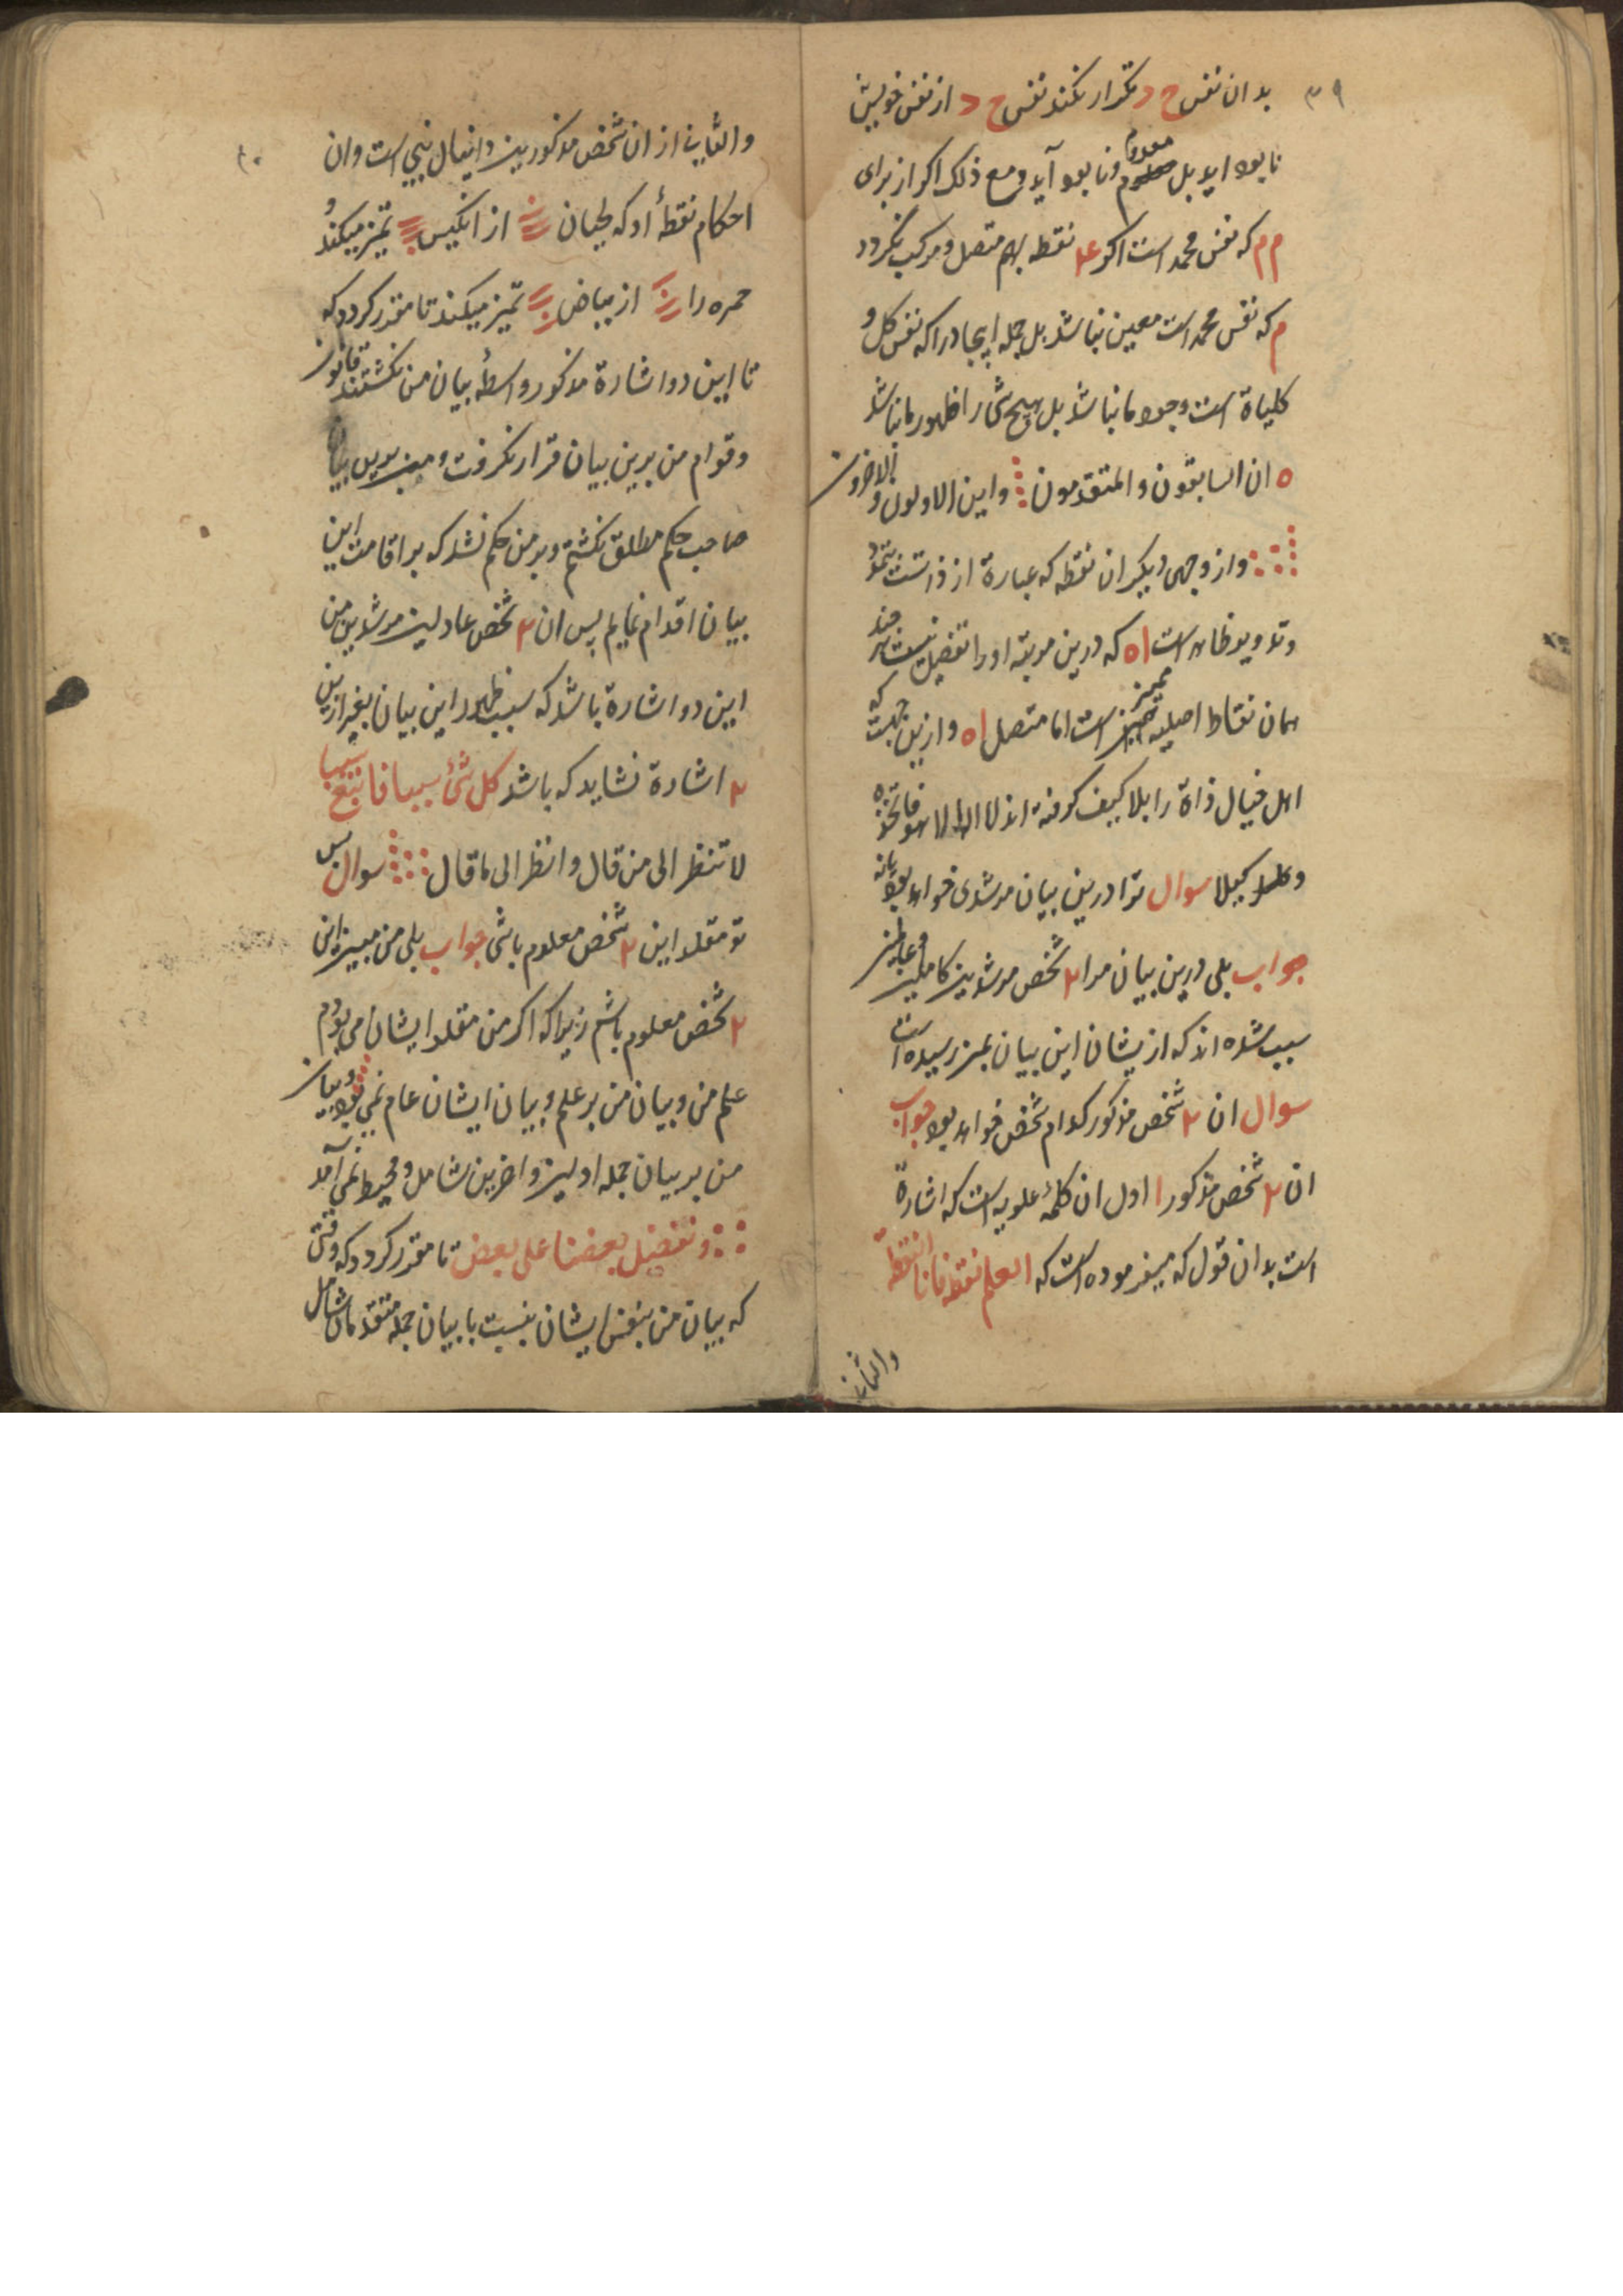 ۳۹
بدان نفس ح د تکرار نکند نفس ح د از نفس خویش
نابود اید بل معدوم و نابود آید و مع ذلک اکر از برای
م م که نفس محمد است اکر ۲۴ نقطه بهم متصل و مرکب نکردد
م که نفس محمد است معین نباشد بل جمله ایجاد را که نفس کل و
کلیاة است وجود ما نباشد بل هیچ شی را ظهور ما نباشد
ه ان السابقون و المتقدمون و این الاولون و الاخرون
و از وجهی دیکر ان نقطه که عبارة از ذاتست
و تدویر ظاهر است اه که درین مرتبه او را تفضیل نیست هر چند
همان نقاط اصلیه ممیز است اما متصل اه و ازین جهت که
اهل خیال ذاة را بلا کیف کرفته اند لا اله الا هو فاتخذه
وکیلا سوال ترا درین بیان مرشدی خواهد بود یا نه
جواب بلی درین بیان مرا ۲ شخص مرشدین کاملین
سبب شده اند که ازیشان این بیان بمن رسیده است
سوال ان ۲ شخص مذکور کدام شخص خواهد بود جواب
ان ۲ شخص مذکور ا اول ان کلمه علویه است که اشارة
است بدان قول که میفرموده است که العلم نقطه فانا النقطة
والثانی
۴۰
والثانی از ان شخص مذکورین دانیال نبی است و ان
احکام نقطهٔ او که لحیان از انکیس تمیز میکند و
حمره را از بیاض تمیز میکند تا مقرر کردد که
تا این دو اشارة مذکور واسطهٔ بیان من نکشتند قانون
و قوام من برین بیان قرار نکرفت و
صاحب حکم مطلق نکشتم و بر من حکم نشد که بر اقامت این
بیان اقدام نمایم پس ان ۲ شخص عادلین مرشدین من
این دو اشارة باشد که سبب ظهور این بیان بغیر ازین
۲ اشارة نشاید که باشد کل شئ سببا فاتبع سببا
لا تنظر الی من قال و انظر الی ما قال سوال پس
تو مقلد این ۲ شخص معلوم باشی جواب بلی من مبین این
۲ شخص معلوم باشم زیرا که اکر من مقلد ایشان می بودم
علم من و بیان من بر علم و بیان ایشان عام نمی بود و بیان
من بر بیان جمله اولین و اخرین شامل و محیط نمی آمد
و نفضل بعضنا علی بعض تا مقرر کردد که وقتی
که بیان من بنفس ایشان نسبت با بیان جمله متقدمان شامل